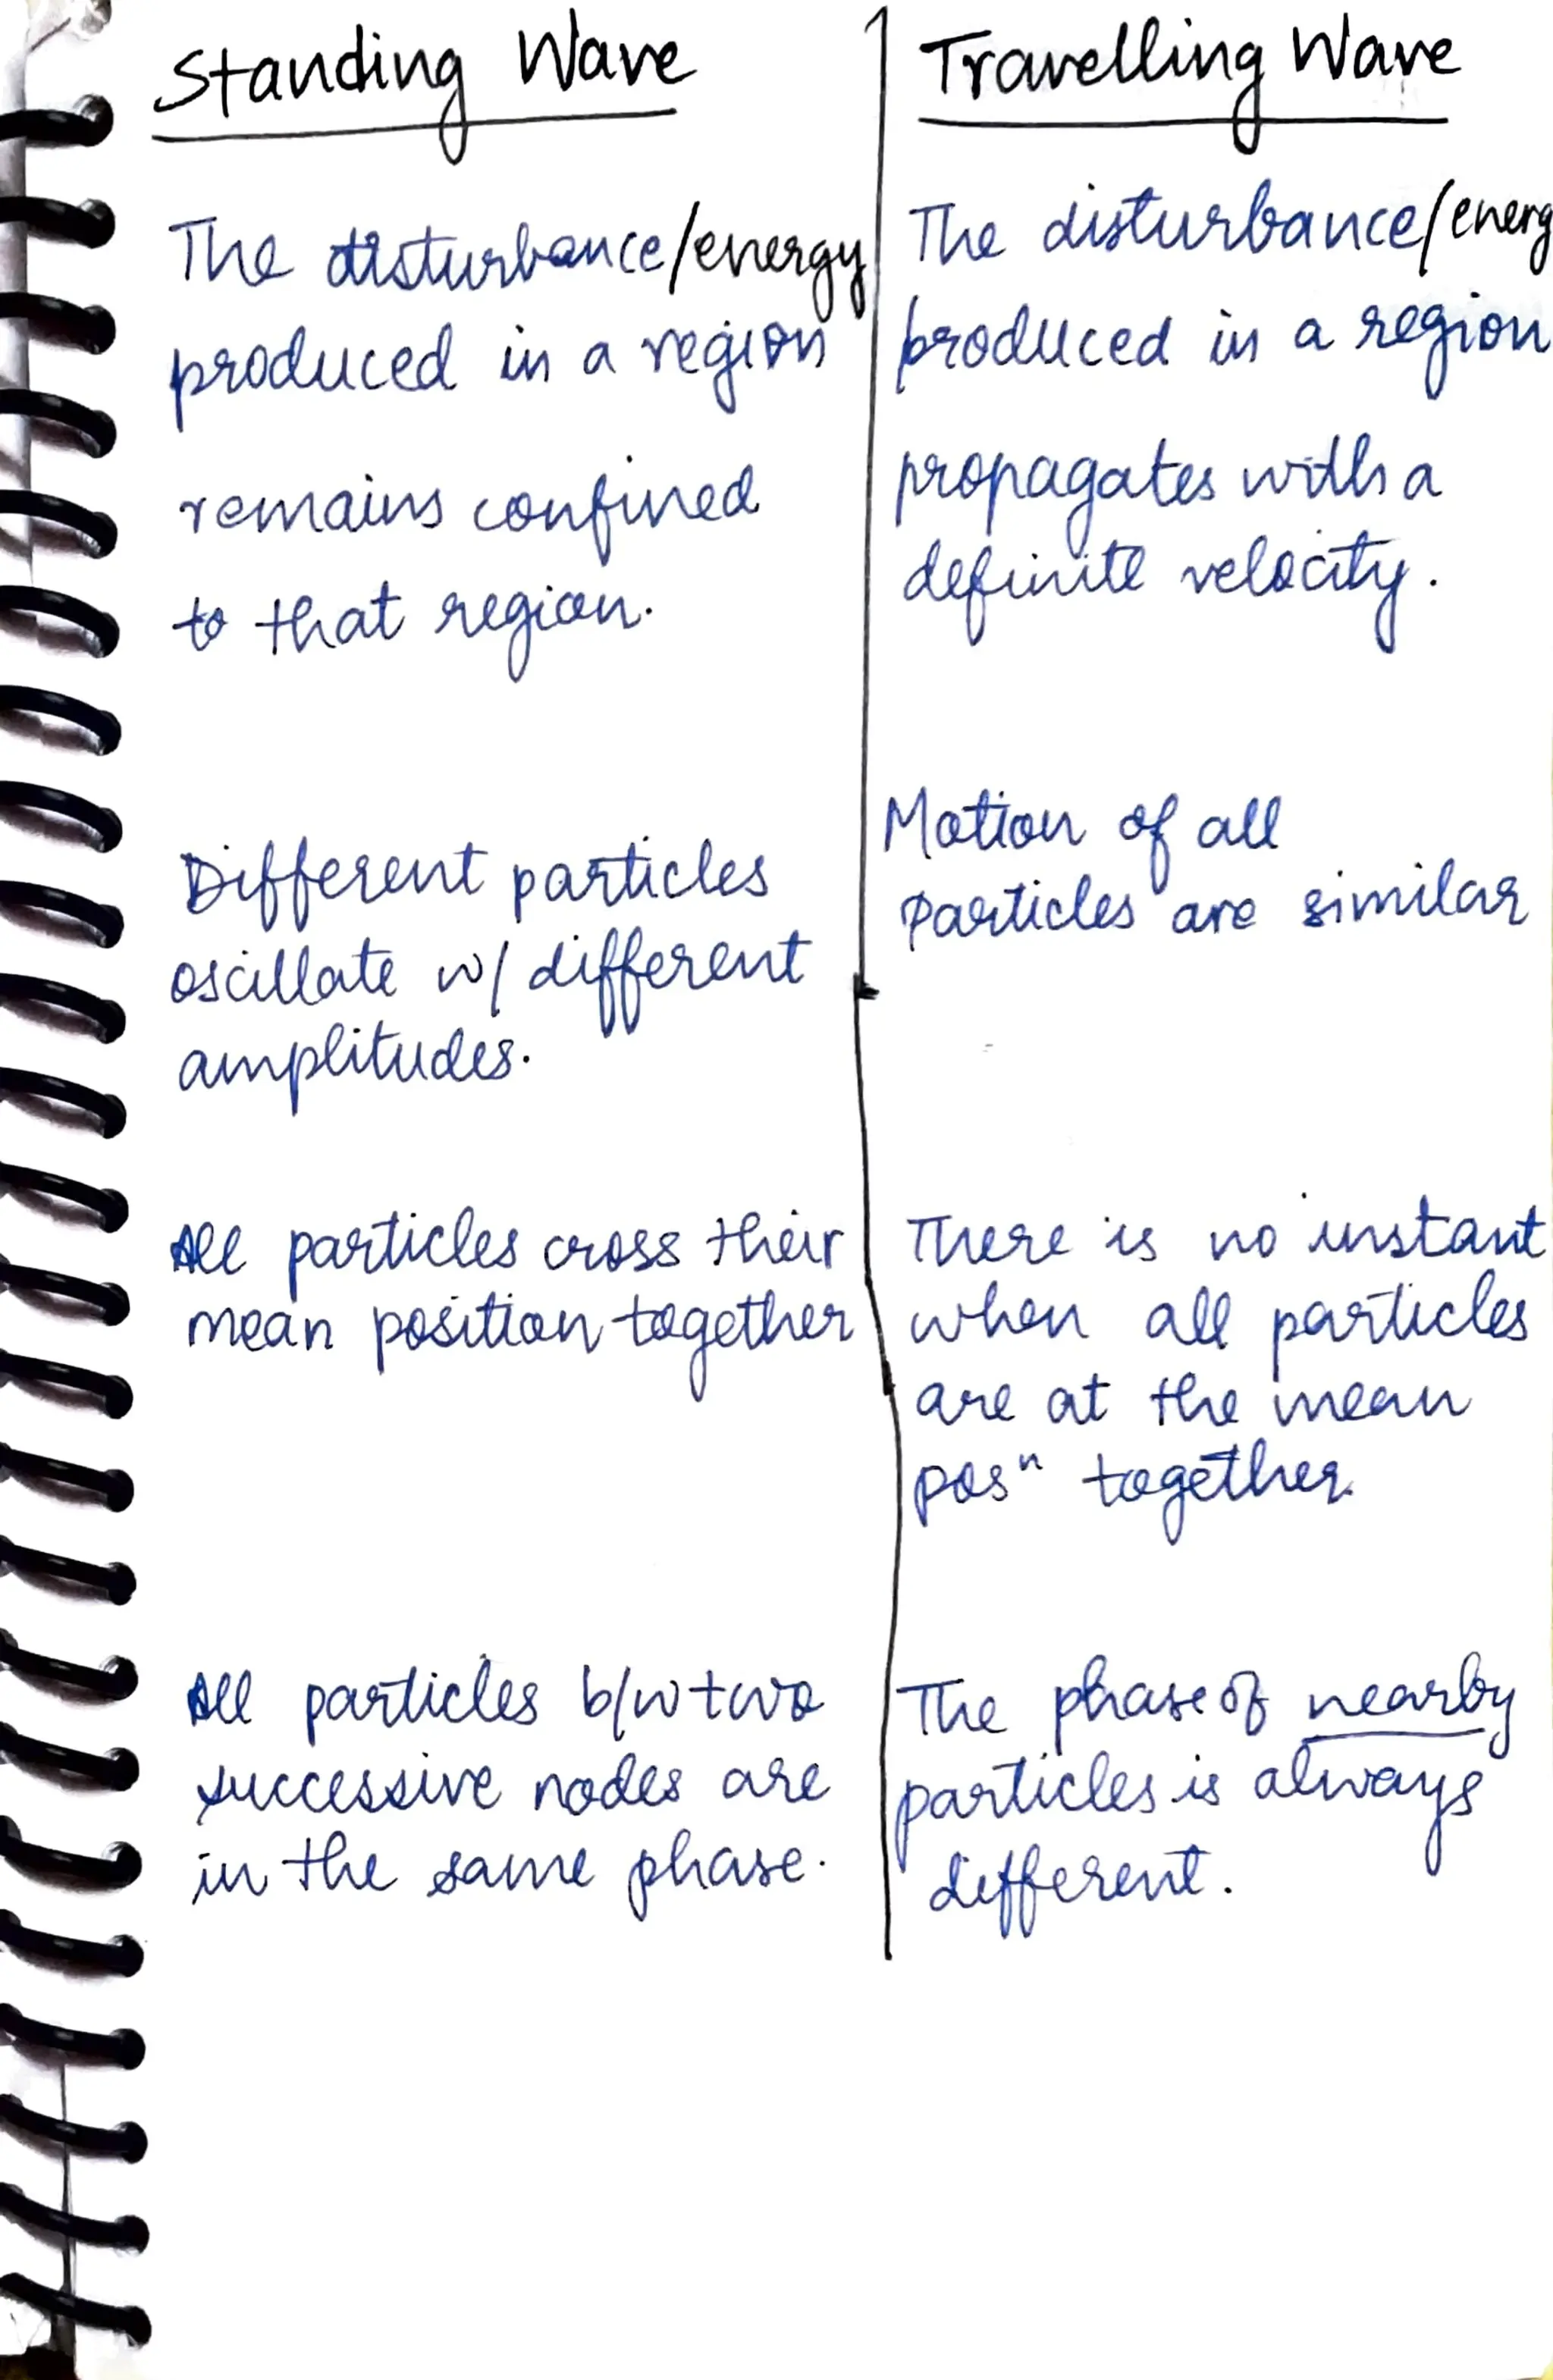 Standing Wave
The disturbance/energy
produced in a region
remains confined
to that region.
Different particles
oscillate w/ different
amplitudes.
All particles cross their
mean position together
All particles b/w two
successive nodes are
in the same phase.
Travelling Wave
The disturbance/energ
produced in a region
propagates with a
definite velocity.
Motion of all
Particles are similar
There is no instant
when all particles
are at the mean
posⁿ together.
The phase of nearby
particles is always
different.